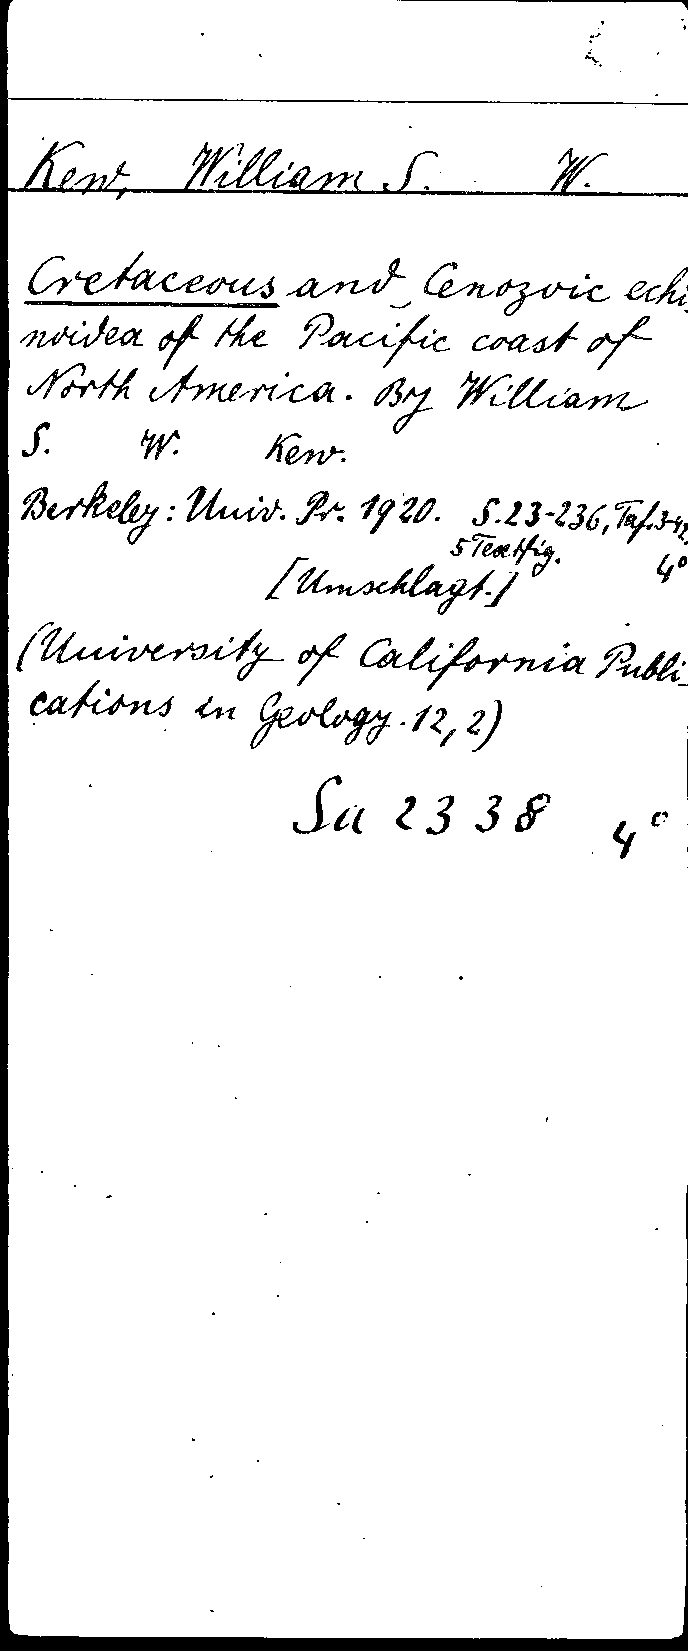 Kew, William S. W.
Cretaceous and Cenozoic echi-
noidea of the Pacific coast of
North America. By William
S. W. Kew.
Berkeley: Univ. Pr. 1920. S. 23-236, Taf. 3-42,
5 Textfig. 4°
[Umschlagt.]
(University of California Publi-
cations in Geology. 12,2)
Su 2338 4°